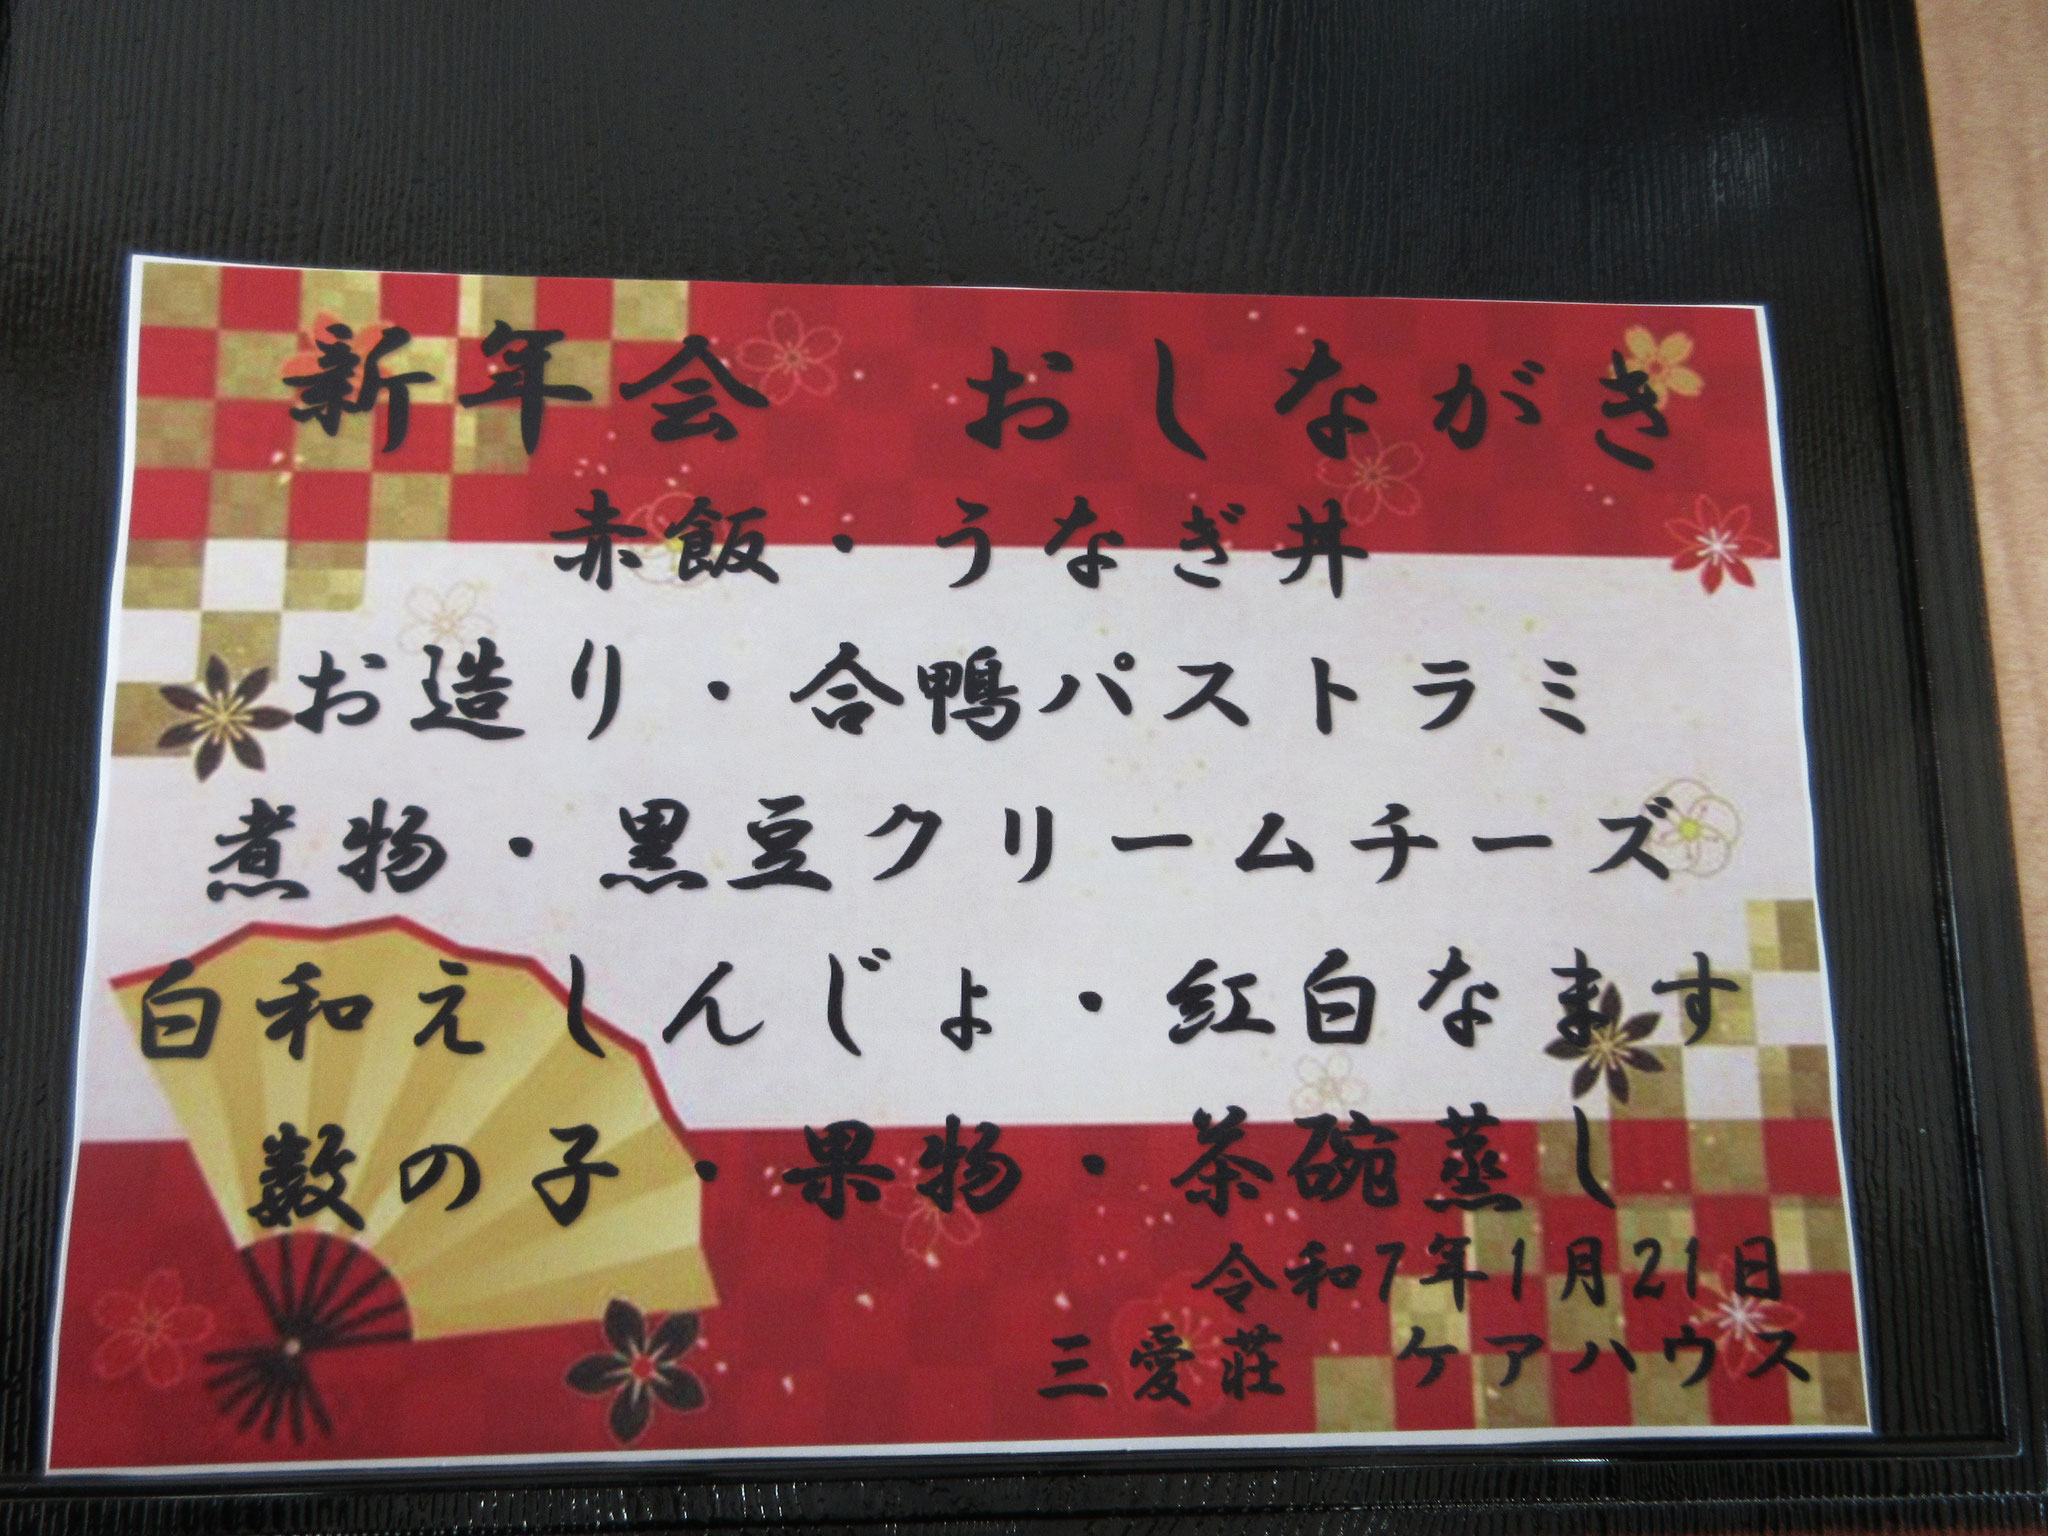 新年会　おしながき
赤飯・うなぎ丼
お造り・合鴨パストラミ
煮物・黒豆クリームチーズ
白和えしんじょ・紅白なます
数の子・果物・茶碗蒸し
令和7年1月21日
三愛荘　ケアハウス